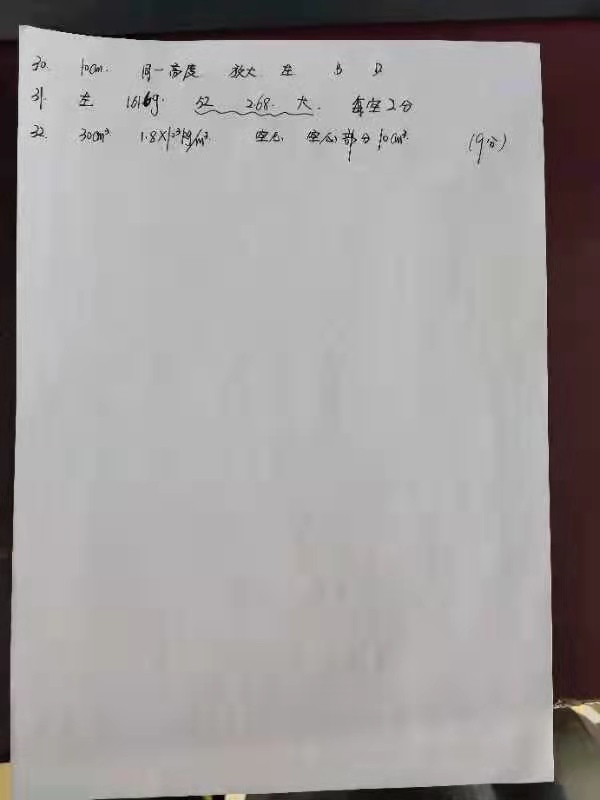 30. 10cm. 同一高度 放大 左 B D
31. 左 161.6g. 52 2.68. 大. 每空2分
32. 30cm³ 1.8×10³kg/m³. 空心 空心部分10cm³. (9分)